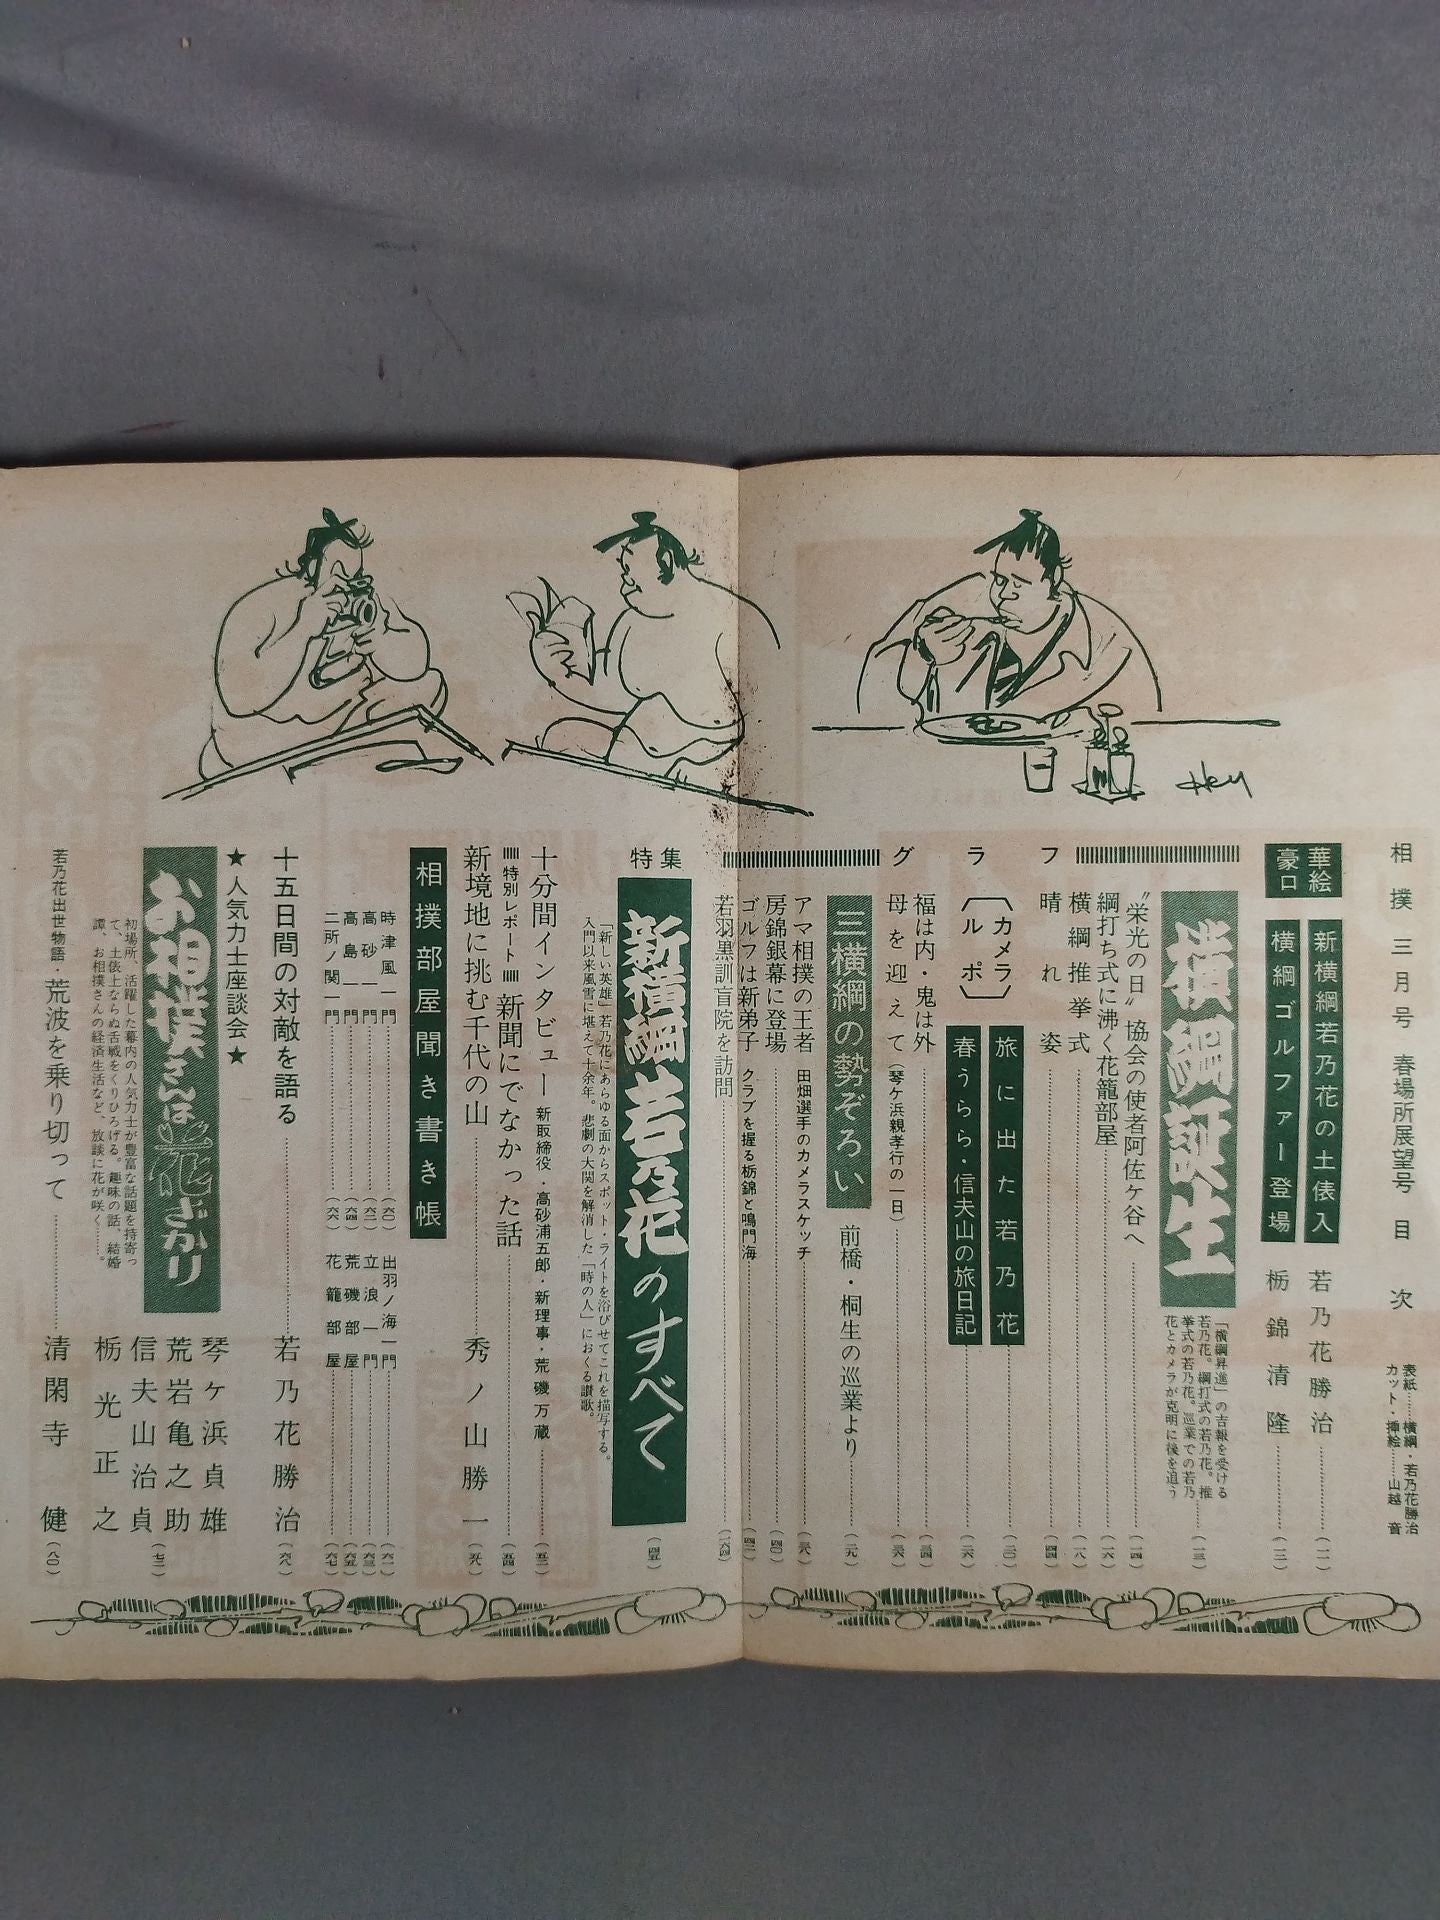 相撲 三月号 春場所展望号 目次
表紙……横綱・若乃花勝治
カット・挿絵……山越 音
華絵
豪口
新横綱若乃花の土俵入 若乃花勝治 (一一)
横綱ゴルファー登場 栃錦清隆 (一二)
横綱誕生 (一三)
「横綱昇進」の吉報を受ける
若乃花。綱打式の若乃花。推
挙式の若乃花。巡業での若乃
花とカメラが克明に後を追う
〝栄光の日〟協会の使者阿佐ケ谷へ (一四)
綱打ち式に沸く花籠部屋 (一六)
横綱推挙式 (一八)
晴れ姿 (四四)
グラフ
〔カメラルポ〕
旅に出た若乃花 (二〇)
春うらら・信夫山の旅日記 (二六)
福は内・鬼は外 (三四)
母を迎えて (琴ケ浜親孝行の一日) (三六)
三横綱の勢ぞろい 前橋・桐生の巡業より (二九)
アマ相撲の王者 田畑選手のカメラスケッチ (三八)
房錦銀幕に登場 (四〇)
ゴルフは新弟子 クラブを握る栃錦と鳴門海 (四二)
若羽黒訓盲院を訪問 (一六四)
特集
新横綱若乃花のすべて (四五)
「新しい英雄」若乃花にあらゆる面からスポット・ライトを浴びせてこれを描写する。
入門以来風雪に堪えて十余年。悲劇の大関を解消した「時の人」におくる讃歌。
十分間インタビュー 新取締役・高砂浦五郎・新理事・荒磯万蔵 (五二)
特別レポート 新聞にでなかった話 (五四)
新境地に挑む千代の山 秀ノ山勝一 (五八)
相撲部屋聞き書き帳
時津風一門 (六〇) 出羽ノ海一門 (六一)
高砂一門 (六二) 立浪一門 (六三)
高島一門 (六四) 荒磯部屋 (六五)
二所ノ関一門 (六六) 花籠部屋 (六七)
十五日間の対敵を語る 若乃花勝治 (六八)
★人気力士座談会★
お相撲さんは花ざかり
初場所、活躍した幕内の人気力士が豊富な話題を持寄っ
て、土俵上ならぬ舌戦をくりひろげる。趣味の話、結婚
譚、お相撲さんの経済生活など、放談に花が咲く……。
琴ケ浜貞雄
荒岩亀之助
信夫山治貞
栃光正之
(七二)
若乃花出世物語・荒波を乗り切って 清閑寺 健 (八〇)